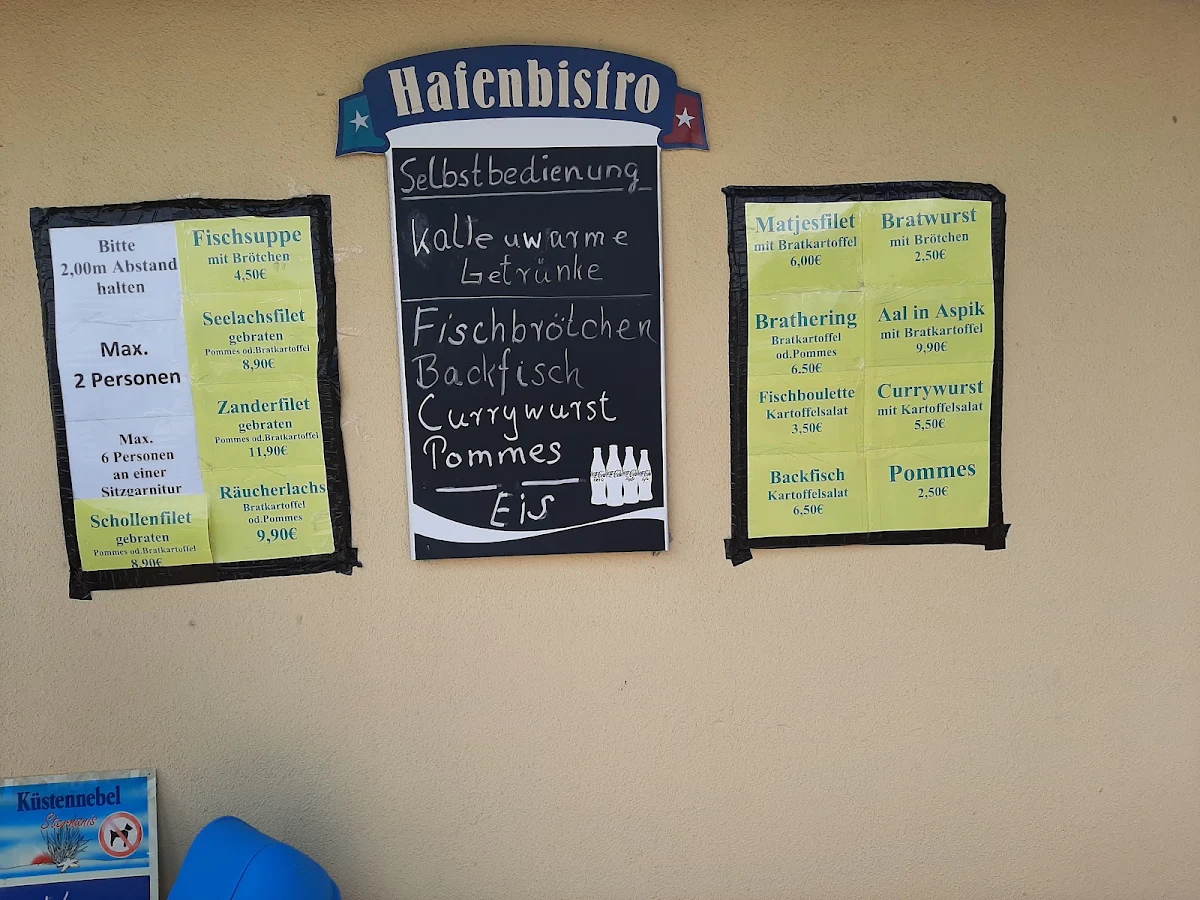 Hafenbistro
Selbstbedienung
Kalte u warme
Getränke
Fischbrötchen
Backfisch
Currywurst
Pommes
Eis
Bitte
2,00m Abstand
halten
Max.
2 Personen
Max.
6 Personen
an einer
Sitzgarnitur
Schollenfilet
gebraten
Pommes od.Bratkartoffel
8,90€
Fischsuppe
mit Brötchen
4,50€
Seelachsfilet
gebraten
Pommes od.Bratkartoffel
8,90€
Zanderfilet
gebraten
Pommes od.Bratkartoffel
11,90€
Räucherlachs
Bratkartoffel
od.Pommes
9,90€
Matjesfilet
mit Bratkartoffel
6,00€
Brathering
Bratkartoffel
od.Pommes
6.50€
Fischboulette
Kartoffelsalat
3,50€
Backfisch
Kartoffelsalat
6,50€
Bratwurst
mit Brötchen
2,50€
Aal in Aspik
mit Bratkartoffel
9,90€
Currywurst
mit Kartoffelsalat
5,50€
Pommes
2,50€
Küstennebel